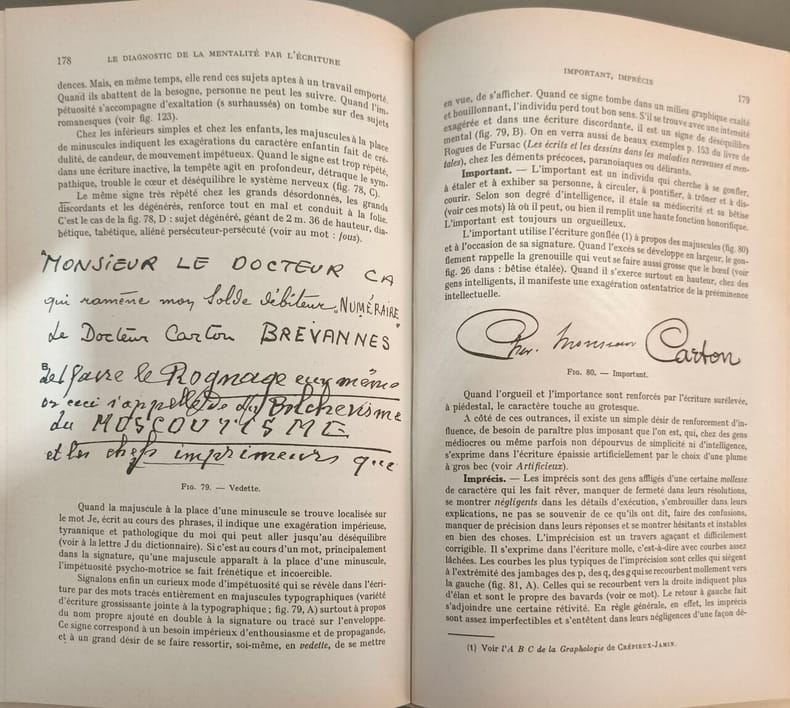 178
LE DIAGNOSTIC DE LA MENTALITÉ PAR L'ÉCRITURE
dences. Mais, en même temps, elle rend ces sujets aptes à un travail emporté.
Quand ils abattent de la besogne, personne ne peut les suivre. Quand l'im-
pétuosité s'accompagne d'exaltation (s surhaussés) on tombe sur des sujets
romanesques (voir fig. 123).
Chez les inférieurs simples et chez les enfants, les majuscules à la place
de minuscules indiquent les exagérations du caractère enfantin fait de cré-
dulité, de candeur, de mouvement impétueux. Quand le signe est trop répété,
dans une écriture inactive, la tempête agit en profondeur, détraque le sym-
pathique, trouble le cœur et déséquilibre le système nerveux (fig. 78, C).
Le même signe très répété chez les grands désordonnés, les grands
discordants et les dégénérés, renforce tout en mal et conduit à la folie.
C'est le cas de la fig. 78, D : sujet dégénéré, géant de 2 m. 36 de hauteur, dia-
bétique, tabétique, aliéné persécuteur-persécuté (voir au mot : fous).
A
MONSIEUR LE DOCTEUR CA
qui ramène mon Solde débiteur "NUMÉRAIRE"
Le Docteur Carton BREVANNES
B
de faire le Rognage eux même
or ceci s'appelle du Bolchevisme
du MOSCOUTISME
et les chefs imprimeurs que
FIG. 79. — Vedette.
Quand la majuscule à la place d'une minuscule se trouve localisée sur
le mot Je, écrit au cours des phrases, il indique une exagération impérieuse,
tyrannique et pathologique du moi qui peut aller jusqu'au déséquilibre
(voir à la lettre J du dictionnaire). Si c'est au cours d'un mot, principalement
dans la signature, qu'une majuscule apparaît à la place d'une minuscule,
l'impétuosité psycho-motrice se fait frénétique et incoercible.
Signalons enfin un curieux mode d'impétuosité qui se révèle dans l'écri-
ture par des mots tracés entièrement en majuscules typographiques (variété
d'écriture grossissante jointe à la typographique ; fig. 79, A) surtout à propos
du nom propre ajouté en double à la signature ou tracé sur l'enveloppe.
Ce signe correspond à un besoin impérieux d'enthousiasme et de propagande,
et à un grand désir de se faire ressortir, soi-même, en vedette, de se mettre
IMPORTANT, IMPRÉCIS
179
en vue, de s'afficher. Quand ce signe tombe dans un milieu graphique exalté
et bouillonnant, l'individu perd tout bon sens. S'il se trouve avec une intensité
exagérée et dans une écriture discordante, il est un signe de déséquilibre
mental (fig. 79, B). On en verra aussi de beaux exemples p. 153 du livre de
Rogues de Fursac (Les écrits et les dessins dans les maladies nerveuses et men-
tales), chez les déments précoces, paranoïaques ou délirants.
Important. — L'important est un individu qui cherche à se gonfler,
à étaler et à exhiber sa personne, à circuler, à pontifier, à trôner et à dis-
courir. Selon son degré d'intelligence, il étale sa médiocrité et sa bêtise
(voir ces mots) là où il peut, ou bien il remplit une haute fonction honorifique.
L'important est toujours un orgueilleux.
L'important utilise l'écriture gonflée (1) à propos des majuscules (fig. 80)
et à l'occasion de sa signature. Quand l'excès se développe en largeur, le gon-
flement rappelle la grenouille qui veut se faire aussi grosse que le bœuf (voir
fig. 26 dans : bêtise étalée). Quand il s'exerce surtout en hauteur, chez des
gens intelligents, il manifeste une exagération ostentatrice de la prééminence
intellectuelle.
Cher Monsieur Carton
FIG. 80. — Important.
Quand l'orgueil et l'importance sont renforcés par l'écriture surélevée,
à piédestal, le caractère touche au grotesque.
A côté de ces outrances, il existe un simple désir de renforcement d'in-
fluence, de besoin de paraître plus imposant que l'on est, qui, chez des gens
médiocres ou même parfois non dépourvus de simplicité ni d'intelligence,
s'exprime dans l'écriture épaissie artificiellement par le choix d'une plume
à gros bec (voir Artificieux).
Imprécis. — Les imprécis sont des gens affligés d'une certaine mollesse
de caractère qui les fait rêver, manquer de fermeté dans leurs résolutions,
se montrer négligents dans les détails d'exécution, s'embrouiller dans leurs
explications, ne pas se souvenir de ce qu'ils ont dit, faire des confusions,
manquer de précision dans leurs réponses et se montrer hésitants et instables
en bien des choses. L'imprécision est un travers agaçant et difficilement
corrigible. Il s'exprime dans l'écriture molle, c'est-à-dire avec courbes assez
lâchées. Les courbes les plus typiques de l'imprécision sont celles qui siègent
à l'extrémité des jambages des p, des q, des g qui se recourbent mollement vers
la gauche (fig. 81, A). Celles qui se recourbent vers la droite indiquent plus
d'élan et sont le propre des bavards (voir ce mot). Le retour à gauche fait
s'adjoindre une certaine rétivité. En règle générale, en effet, les imprécis
sont assez imperfectibles et s'entêtent dans leurs négligences d'une façon dé-
(1) Voir l'A B C de la Graphologie de CRÉPIEUX-JAMIN.